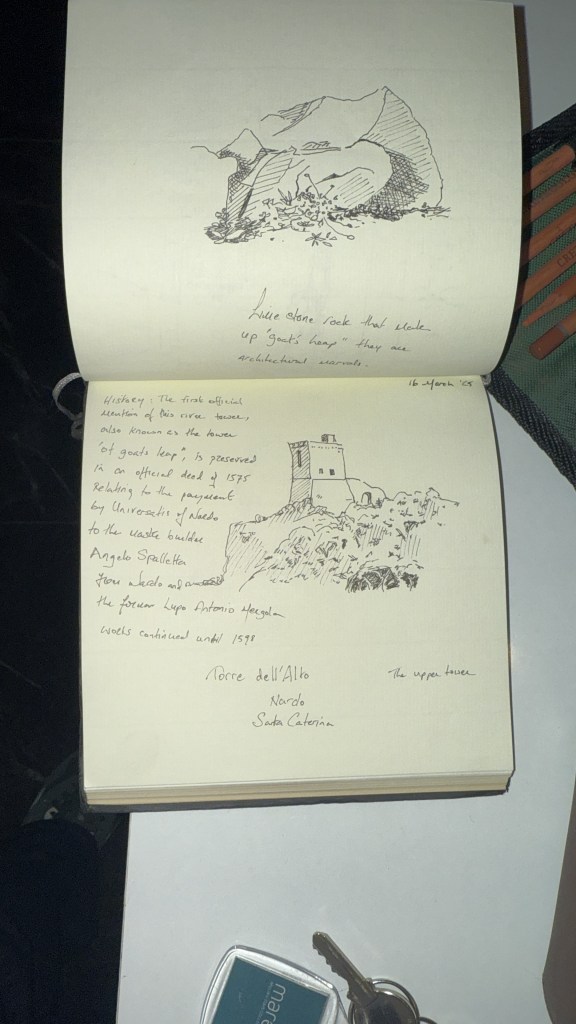 Lime stone rock that make
up "goat's leap" they are
architectural marvels.
16 March '25
History: The first official
mention of this river tower,
also known as the tower
"of goats leap", is preserved
in an official deed of 1575
relating to the payment
by Universitis of Nardo
to the master builder
Angelo Spalletta
from Nardo and
the former Lupo Antonio
works continued until 1598
Torre dell'Alto
Nardo
Santa Caterina
The upper tower
mara